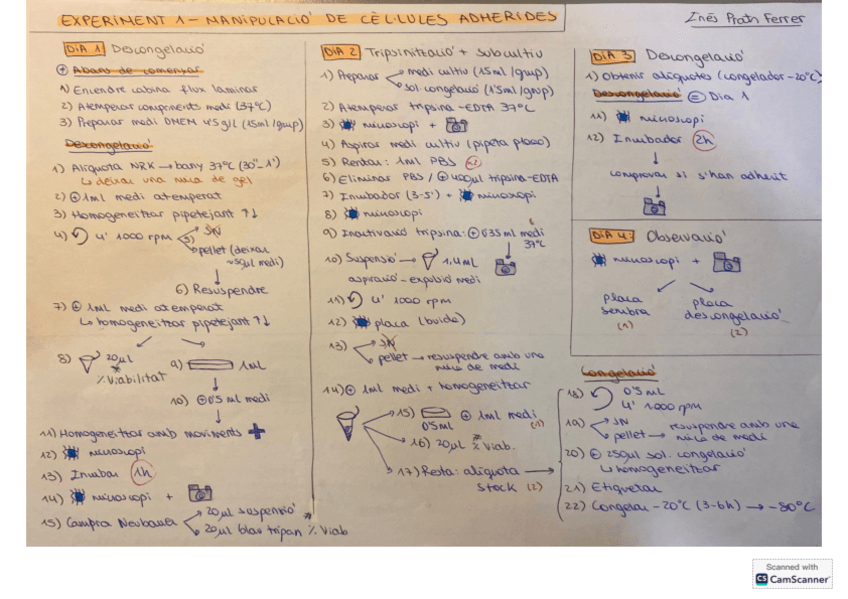 EXPERIMENT 1 - MANIPULACIÓ DE CÈL·LULES ADHERIDES
Inés Prath Ferrer
DIA 1 Descongelació
Abans de començar
1) Encendre cabina flux laminar
2) Atemperar components medi (37°C)
3) Preparar medi DMEM 4'5g/L (15ml/grup)
Descongelació
1) Alíquota NRK → bany 37°C (30"-1')
↳ deixar una mica de gel
2) ⊕ 1ml medi atemperat
3) Homogeneitzar pipetejant ↑↓
4) 4' 1000 rpm
5) SN
pellet (deixar ~50µl medi)
6) Resuspendre
7) ⊕ 1ml medi atemperat
↳ homogeneitzar pipetejant ↑↓
8) 20µl
* % Viabilitat
9) 1ml
10) ⊕ 0'5 ml medi
11) Homogeneitzar amb moviments +
12) microscopi
13) Incubar 1h
14) microscopi +
15) Cambra Neubauer
20µl suspensió *
20µl blau tripan % Viab
DIA 2 Tripsinització + subcultiu
1) Preparar
medi cultiu (15ml/grup)
sol. congelació (1'5ml/grup)
2) Atemperar tripsina-EDTA 37°C
3) microscopi +
4) Aspirar medi cultiu (pipeta plano)
5) Rentar: 1ml PBS x2
6) Eliminar PBS / ⊕ 400µl tripsina-EDTA
7) Incubador (3-5') + microscopi
8) microscopi
9) Inactivació tripsina: ⊕ 0'35 ml medi 37°C
10) Suspensió → 1,4ml
aspiració-expulsió medi
11) 4' 1000 rpm
12) placa (buida)
13) SN
pellet → resuspendre amb una mica de medi
14) ⊕ 1ml medi + homogeneitzar
15) 0'5ml ⊕ 1ml medi (1)
16) 20µl * % Viab.
17) Resta: alíquota stock (2)
DIA 3 Descongelació
1) Obtenir alíquotes (congelador -20°C)
Descongelació = Dia 1
11) microscopi
12) Incubador 2h
comprovar si s'han adherit
DIA 4: Observació
microscopi +
placa sembra (1)
placa descongelació (2)
Congelació
18) 0'5 ml
4' 1000 rpm
19) SN
pellet → resuspendre amb una mica de medi
20) ⊕ 250µl sol. congelació
↳ homogeneitzar
21) Etiquetar
22) Congelar -20°C (3-6h) → -80°C
Scanned with
CS CamScanner